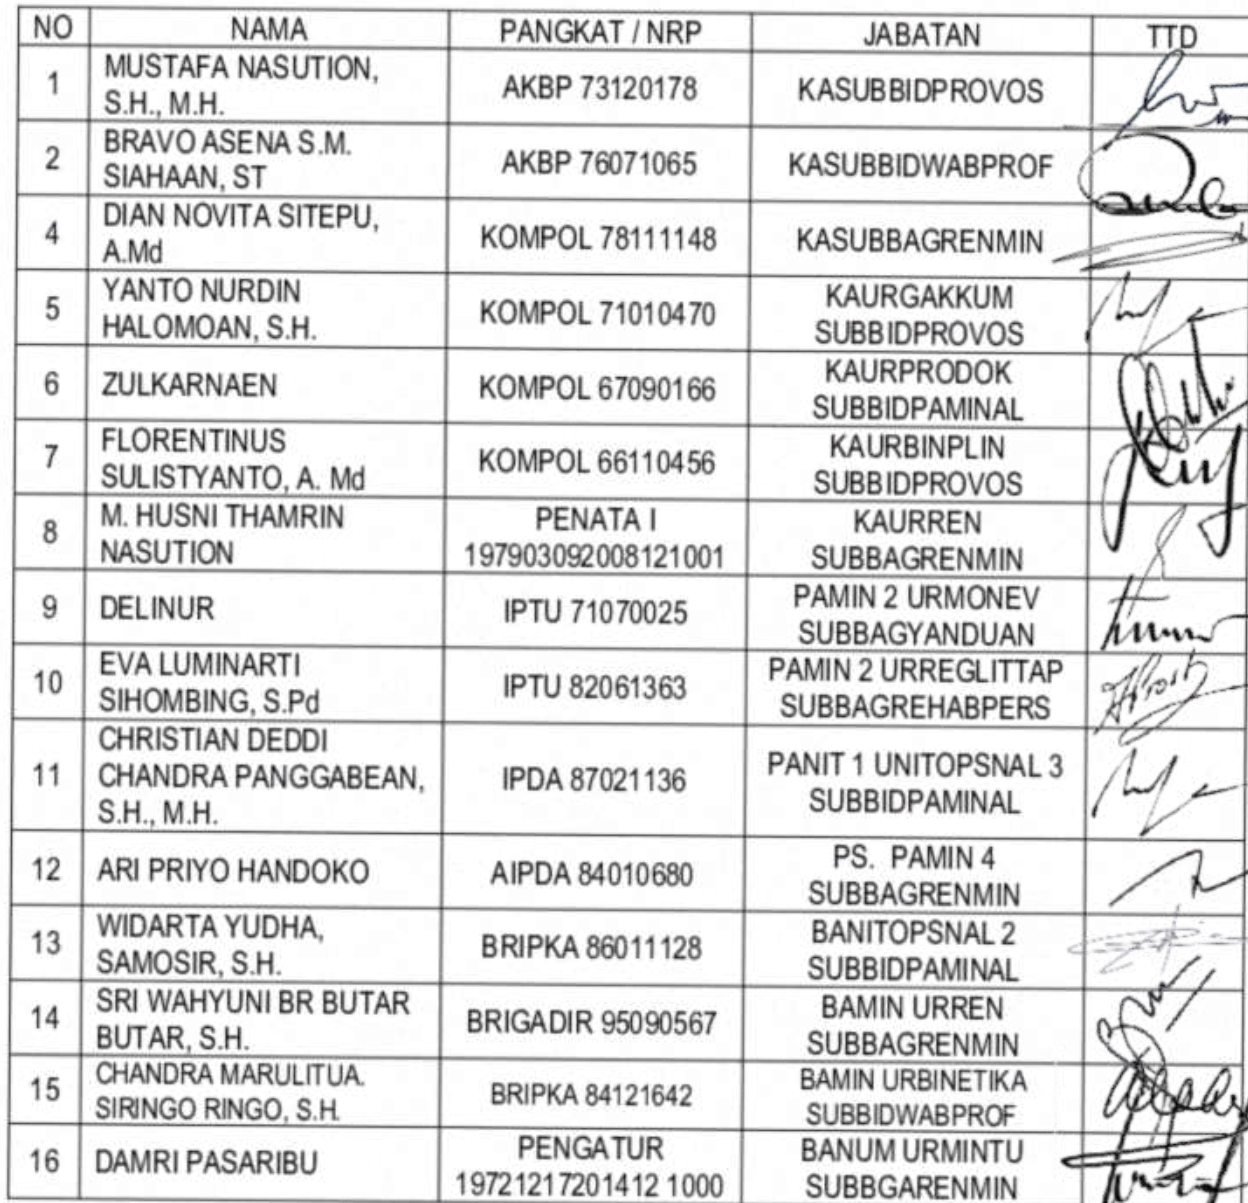 NO NAMA PANGKAT / NRP JABATAN TTD
1 MUSTAFA NASUTION, S.H., M.H. AKBP 73120178 KASUBBIDPROVOS
2 BRAVO ASENA S.M. SIAHAAN, ST AKBP 76071065 KASUBBIDWABPROF
4 DIAN NOVITA SITEPU, A.Md KOMPOL 78111148 KASUBBAGRENMIN
5 YANTO NURDIN HALOMOAN, S.H. KOMPOL 71010470 KAURGAKKUM SUBBIDPROVOS
6 ZULKARNAEN KOMPOL 67090166 KAURPRODOK SUBBIDPAMINAL
7 FLORENTINUS SULISTYANTO, A. Md KOMPOL 66110456 KAURBINPLIN SUBBIDPROVOS
8 M. HUSNI THAMRIN NASUTION PENATA I 197903092008121001 KAURREN SUBBAGRENMIN
9 DELINUR IPTU 71070025 PAMIN 2 URMONEV SUBBAGYANDUAN
10 EVA LUMINARTI SIHOMBING, S.Pd IPTU 82061363 PAMIN 2 URREGLITTAP SUBBAGREHABPERS
11 CHRISTIAN DEDDI CHANDRA PANGGABEAN, S.H., M.H. IPDA 87021136 PANIT 1 UNITOPSNAL 3 SUBBIDPAMINAL
12 ARI PRIYO HANDOKO AIPDA 84010680 PS. PAMIN 4 SUBBAGRENMIN
13 WIDARTA YUDHA, SAMOSIR, S.H. BRIPKA 86011128 BANITOPSNAL 2 SUBBIDPAMINAL
14 SRI WAHYUNI BR BUTAR BUTAR, S.H. BRIGADIR 95090567 BAMIN URREN SUBBAGRENMIN
15 CHANDRA MARULITUA. SIRINGO RINGO, S.H. BRIPKA 84121642 BAMIN URBINETIKA SUBBIDWABPROF
16 DAMRI PASARIBU PENGATUR 19721217201412 1000 BANUM URMINTU SUBBGARENMIN